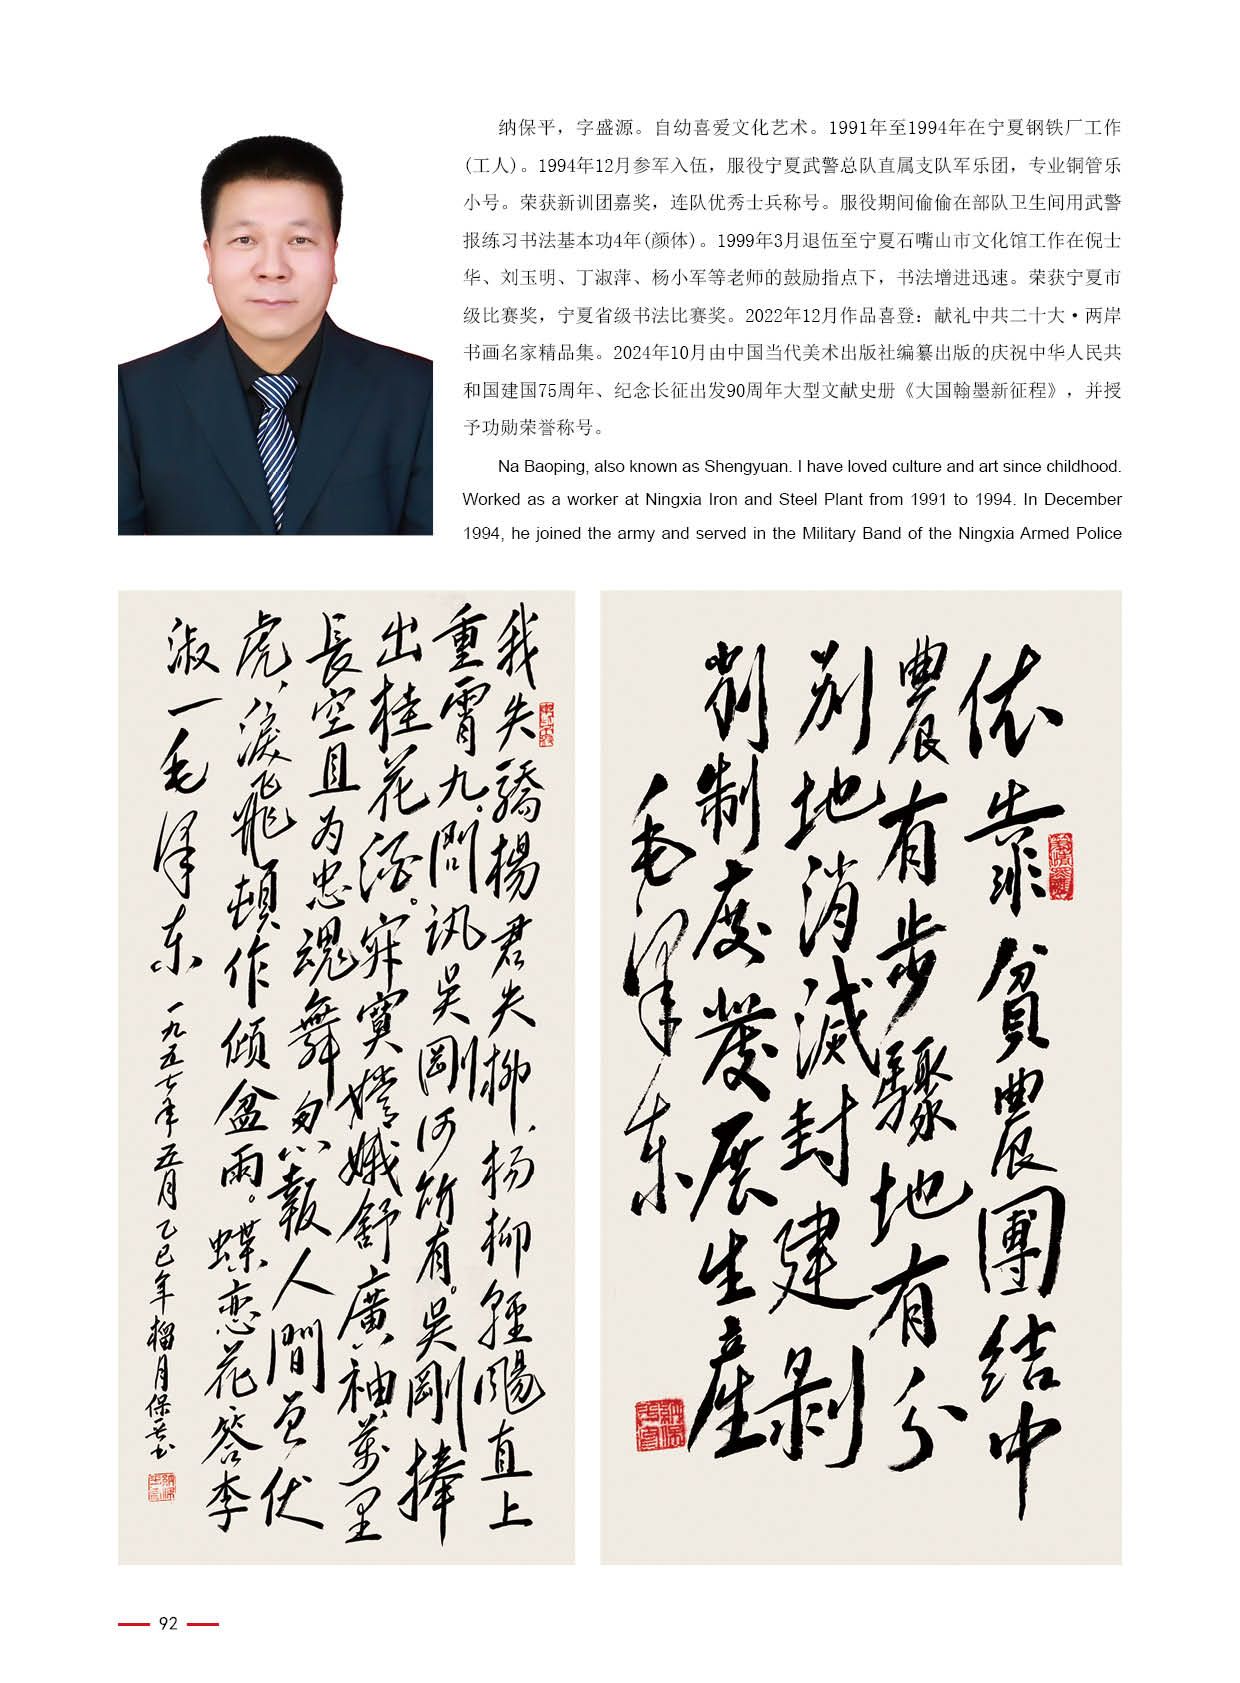 纳保平，字盛源。自幼喜爱文化艺术。1991年至1994年在宁夏钢铁厂工作
(工人)。1994年12月参军入伍，服役宁夏武警总队直属支队军乐团，专业铜管乐
小号。荣获新训团嘉奖，连队优秀士兵称号。服役期间偷偷在部队卫生间用武警
报练习书法基本功4年(颜体)。1999年3月退伍至宁夏石嘴山市文化馆工作在倪士
华、刘玉明、丁淑萍、杨小军等老师的鼓励指点下，书法增进迅速。荣获宁夏市
级比赛奖，宁夏省级书法比赛奖。2022年12月作品喜登：献礼中共二十大·两岸
书画名家精品集。2024年10月由中国当代美术出版社编纂出版的庆祝中华人民共
和国建国75周年、纪念长征出发90周年大型文献史册《大国翰墨新征程》，并授
予功勋荣誉称号。
Na Baoping, also known as Shengyuan. I have loved culture and art since childhood.
Worked as a worker at Ningxia Iron and Steel Plant from 1991 to 1994. In December
1994, he joined the army and served in the Military Band of the Ningxia Armed Police
我失驕楊君失柳，杨柳輕颺直上
重霄九。問訊吳剛何所有。吳剛捧
出桂花酒。寂寞嫦娥舒廣袖萬里
長空且为忠魂舞忽報人間曾伏
虎，淚飛頓作傾盆雨。蝶恋花答李
淑一毛泽东一九五七年五月乙巳年榴月保平书
依靠貧農團結中
農有步驟地有分
别地消滅封建剥
削制度發展生產
毛泽东
92